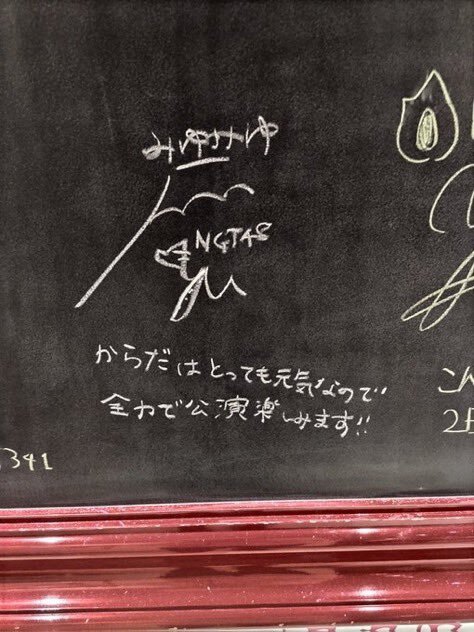 みゆみゆ
NGT48
からだはとっても元気なので
全力で公演楽しみます!!
341
こん
2